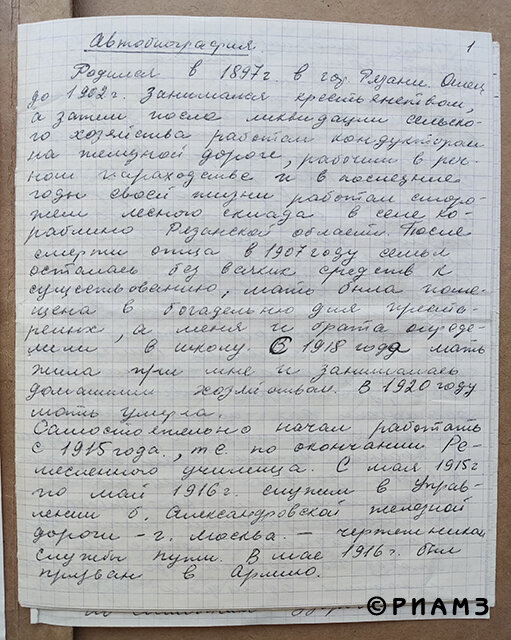 1
Автобиография.
Родился в 1897г. в гор. Рязани. Отец
до 1902г. занимался крестьянством,
а затем после ликвидации сельско-
го хозяйства работал кондуктором
на железной дороге, рабочим в реч-
ном пароходстве и в последние
годы своей жизни работал сторо-
жем лесного склада в селе Ко-
раблино Рязанской области. После
смерти отца в 1907 году семья
осталась без всяких средств к
существованию, мать была поме-
щена в богадельню для преста-
релых, а меня и брата опреде-
лили в школу. С 1918 года мать
жила при мне и занималась
домашним хозяйством. В 1920 году
мать умерла.
Самостоятельно начал работать
с 1915 года, т.е. по окончании Ре-
месленного училища. С мая 1915г
по май 1916г. служил в Управ-
лении б. Александровской железной
дороги - г. Москва. - чертежником
службы пути. В мае 1916г. был
призван в Армию.
©РИАМЗ